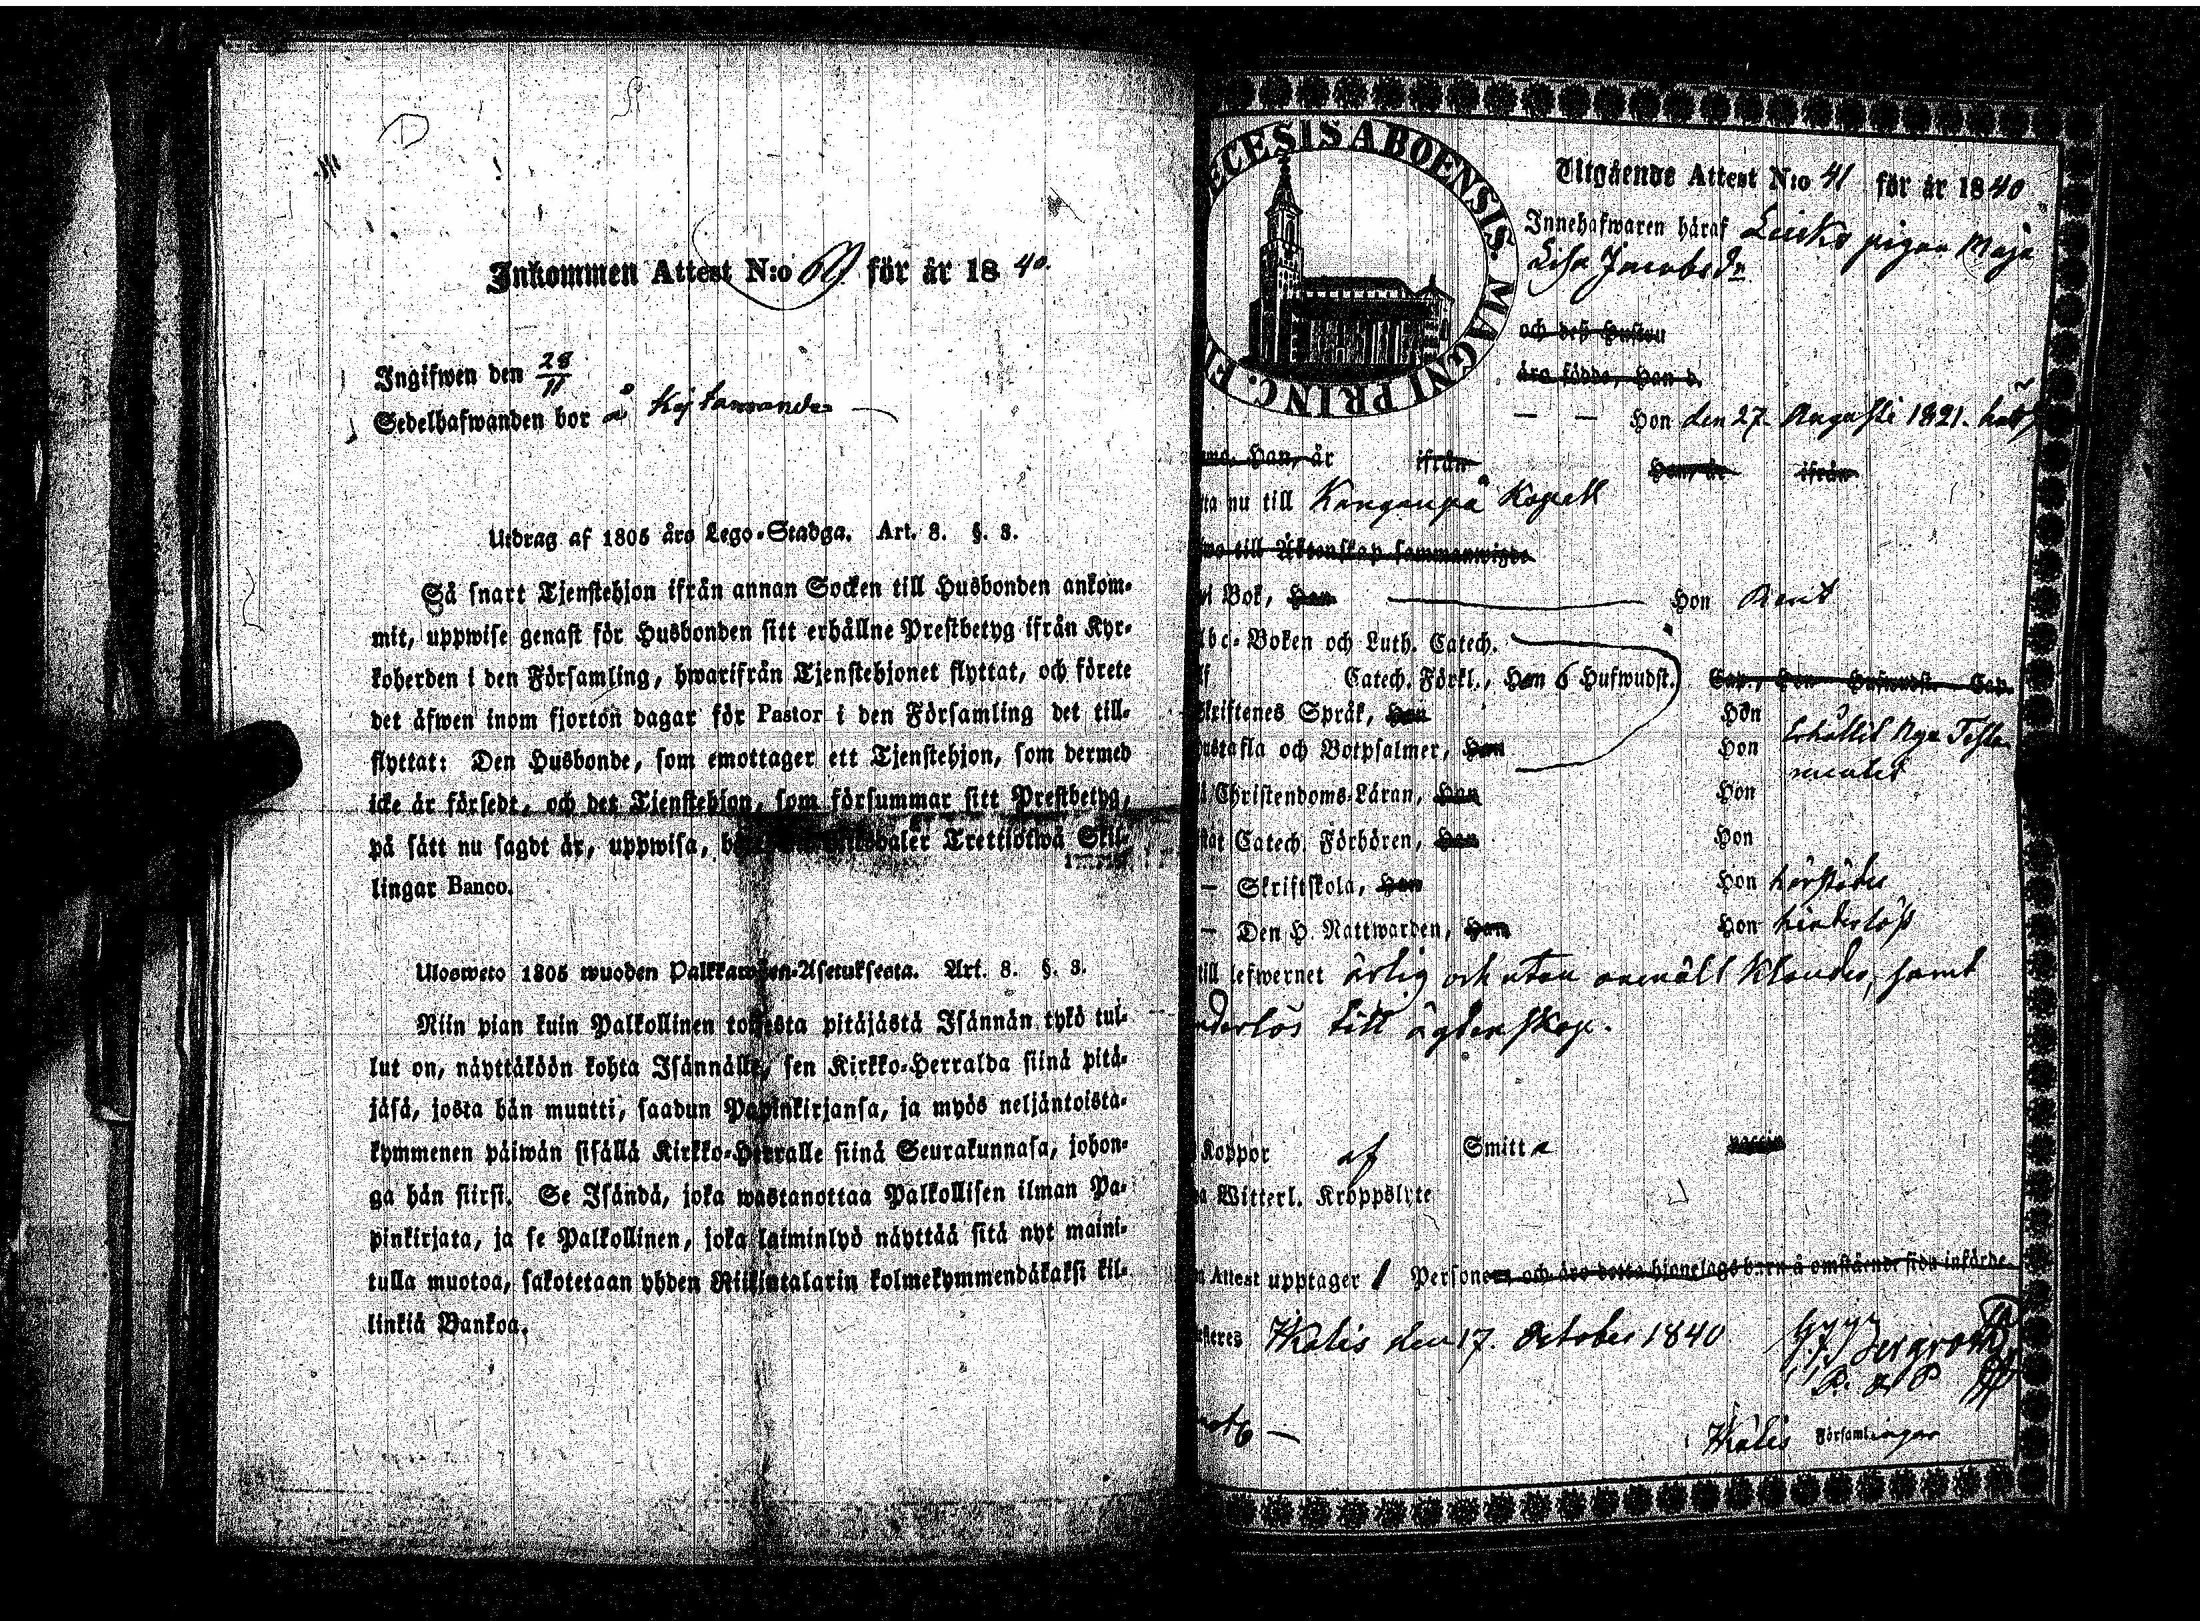 Inkommen Attest N:o för år 1840.
Ingifwen den 28/11
Sedelhafwanden bor å
Utdrag af 1805 års Lego-Stadga. Art. 8. §. 3.
Så snart Tjenstehjon ifrån annan Socken till Husbonden ankom-
mit, uppwise genast för Husbonden sitt erhållne Prestbetyg ifrån Kyr-
koherden i den Församling, hwarifrån Tjenstehjonet flyttat, och förete
det äfwen inom fjorton dagar för Pastor i den Församling det till-
flyttat: Den Husbonde, som emottager ett Tjenstehjon, som dermed
icke är försedt, och det Tjenstehjon, som försummar sitt Prestbetyg,
på sätt nu sagdt är, uppwisa, Trettiotwå Skil-
lingar Banco.
Ulosweto 1805 wuoden Palkkawäen-Asetuksesta. Art. 8. §. 3.
Niin pian kuin Palkollinen toisesta pitäjästä Isännän tykö tul-
lut on, näyttäköön kohta Isännälle, sen Kirkko-Herralda siinä pitä-
jäsä, josta hän muutti, saadun Papinkirjansa, ja myös neljäntoista-
kymmenen päiwän sisällä Kirkko-Herralle siinä Seurakunnasa, johon-
ga hän siirsi. Se Isändä, joka wastanottaa Palkollisen ilman Pa-
pinkirjata, ja se Palkollinen, joka laiminlyö näyttää sitä nyt maini-
tulla muotoa, sakotetaan yhden Riikintalarin kolmekymmendäkaksi kil-
linkiä Bankoa.
ECESIS ABOENSIS. MAGNI PRINC. F
Utgående Attest N:o 41 för år 1840
Innehafwaren häraf pigan Maja
Lisa Jacobsdr
och deß Hustru
äro födde, Han d.
— — Hon den 27. Augusti 1821.
Han, är ifrån Hon, är ifrån
nu till Kanganpä Kapell
till Äktenskap sammanwigde
i Bok, Han Hon Rent
Abc-Boken och Luth. Catech.
Catech. Förkl., Hon 6 Hufwudst. Cap., Hon Hufwudst. Cap.
Skriftenes Språk, Han Hon
Hustafla och Botpsalmer, Han Hon Erhållit Nya Testa-
mentet
Christendoms-Läran, Han Hon
Catech. Förhören, Han Hon
— Skriftskola, Han Hon härstädes
— Den H. Nattwarden, Han Hon hinderlös
till lefwernet ärlig och utan anmält Klander, samt
hinderlös till ägtenskap.
Koppor af Smitta
Witterl. Kroppslyte
Attest upptager 1 Personer och äro detta hjonelags barn å omstående sida införde.
den 17. October 1840
Bergroth
Församlingar